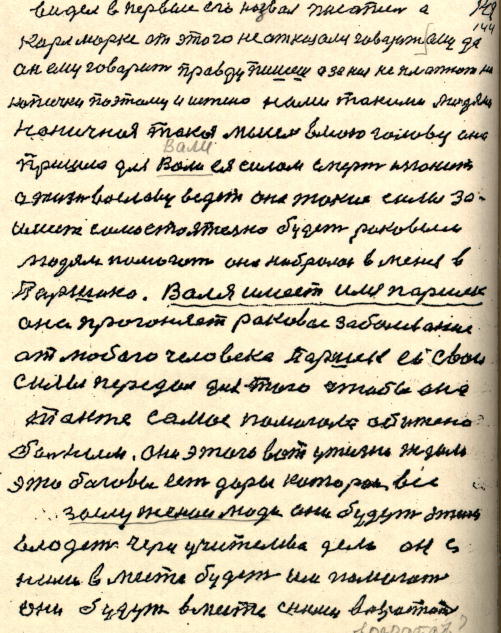 видел в первые его назвал писатил а
Карл Маркс от этого не откозали говорит ему да
он ему говорит правду пишеш а за ня не платют ни
копички поэтому и имено нами такими людям
Наничноя такоя мысел в мою голову она
Вали
пришла для Вали ея силам смерт изгонит
а жизн во славу ведет она такие силы за-
имеит самостоятелно будет раковым
людям помогат она набралас в меня в
Паршика. Валя имеет имя паршек
она прогоняет раковое заболивание
от любого человека Паршек ей свои
силы передал для того чтобы она
тапже самое помогала обижено
болным. Она этого вот у жизни ждала
это баговы ест дары которои все
заслуженои люди они будут этим
влодет чериз учителива дела он с
ними в месте будет им помогат
они будут в месте сними в